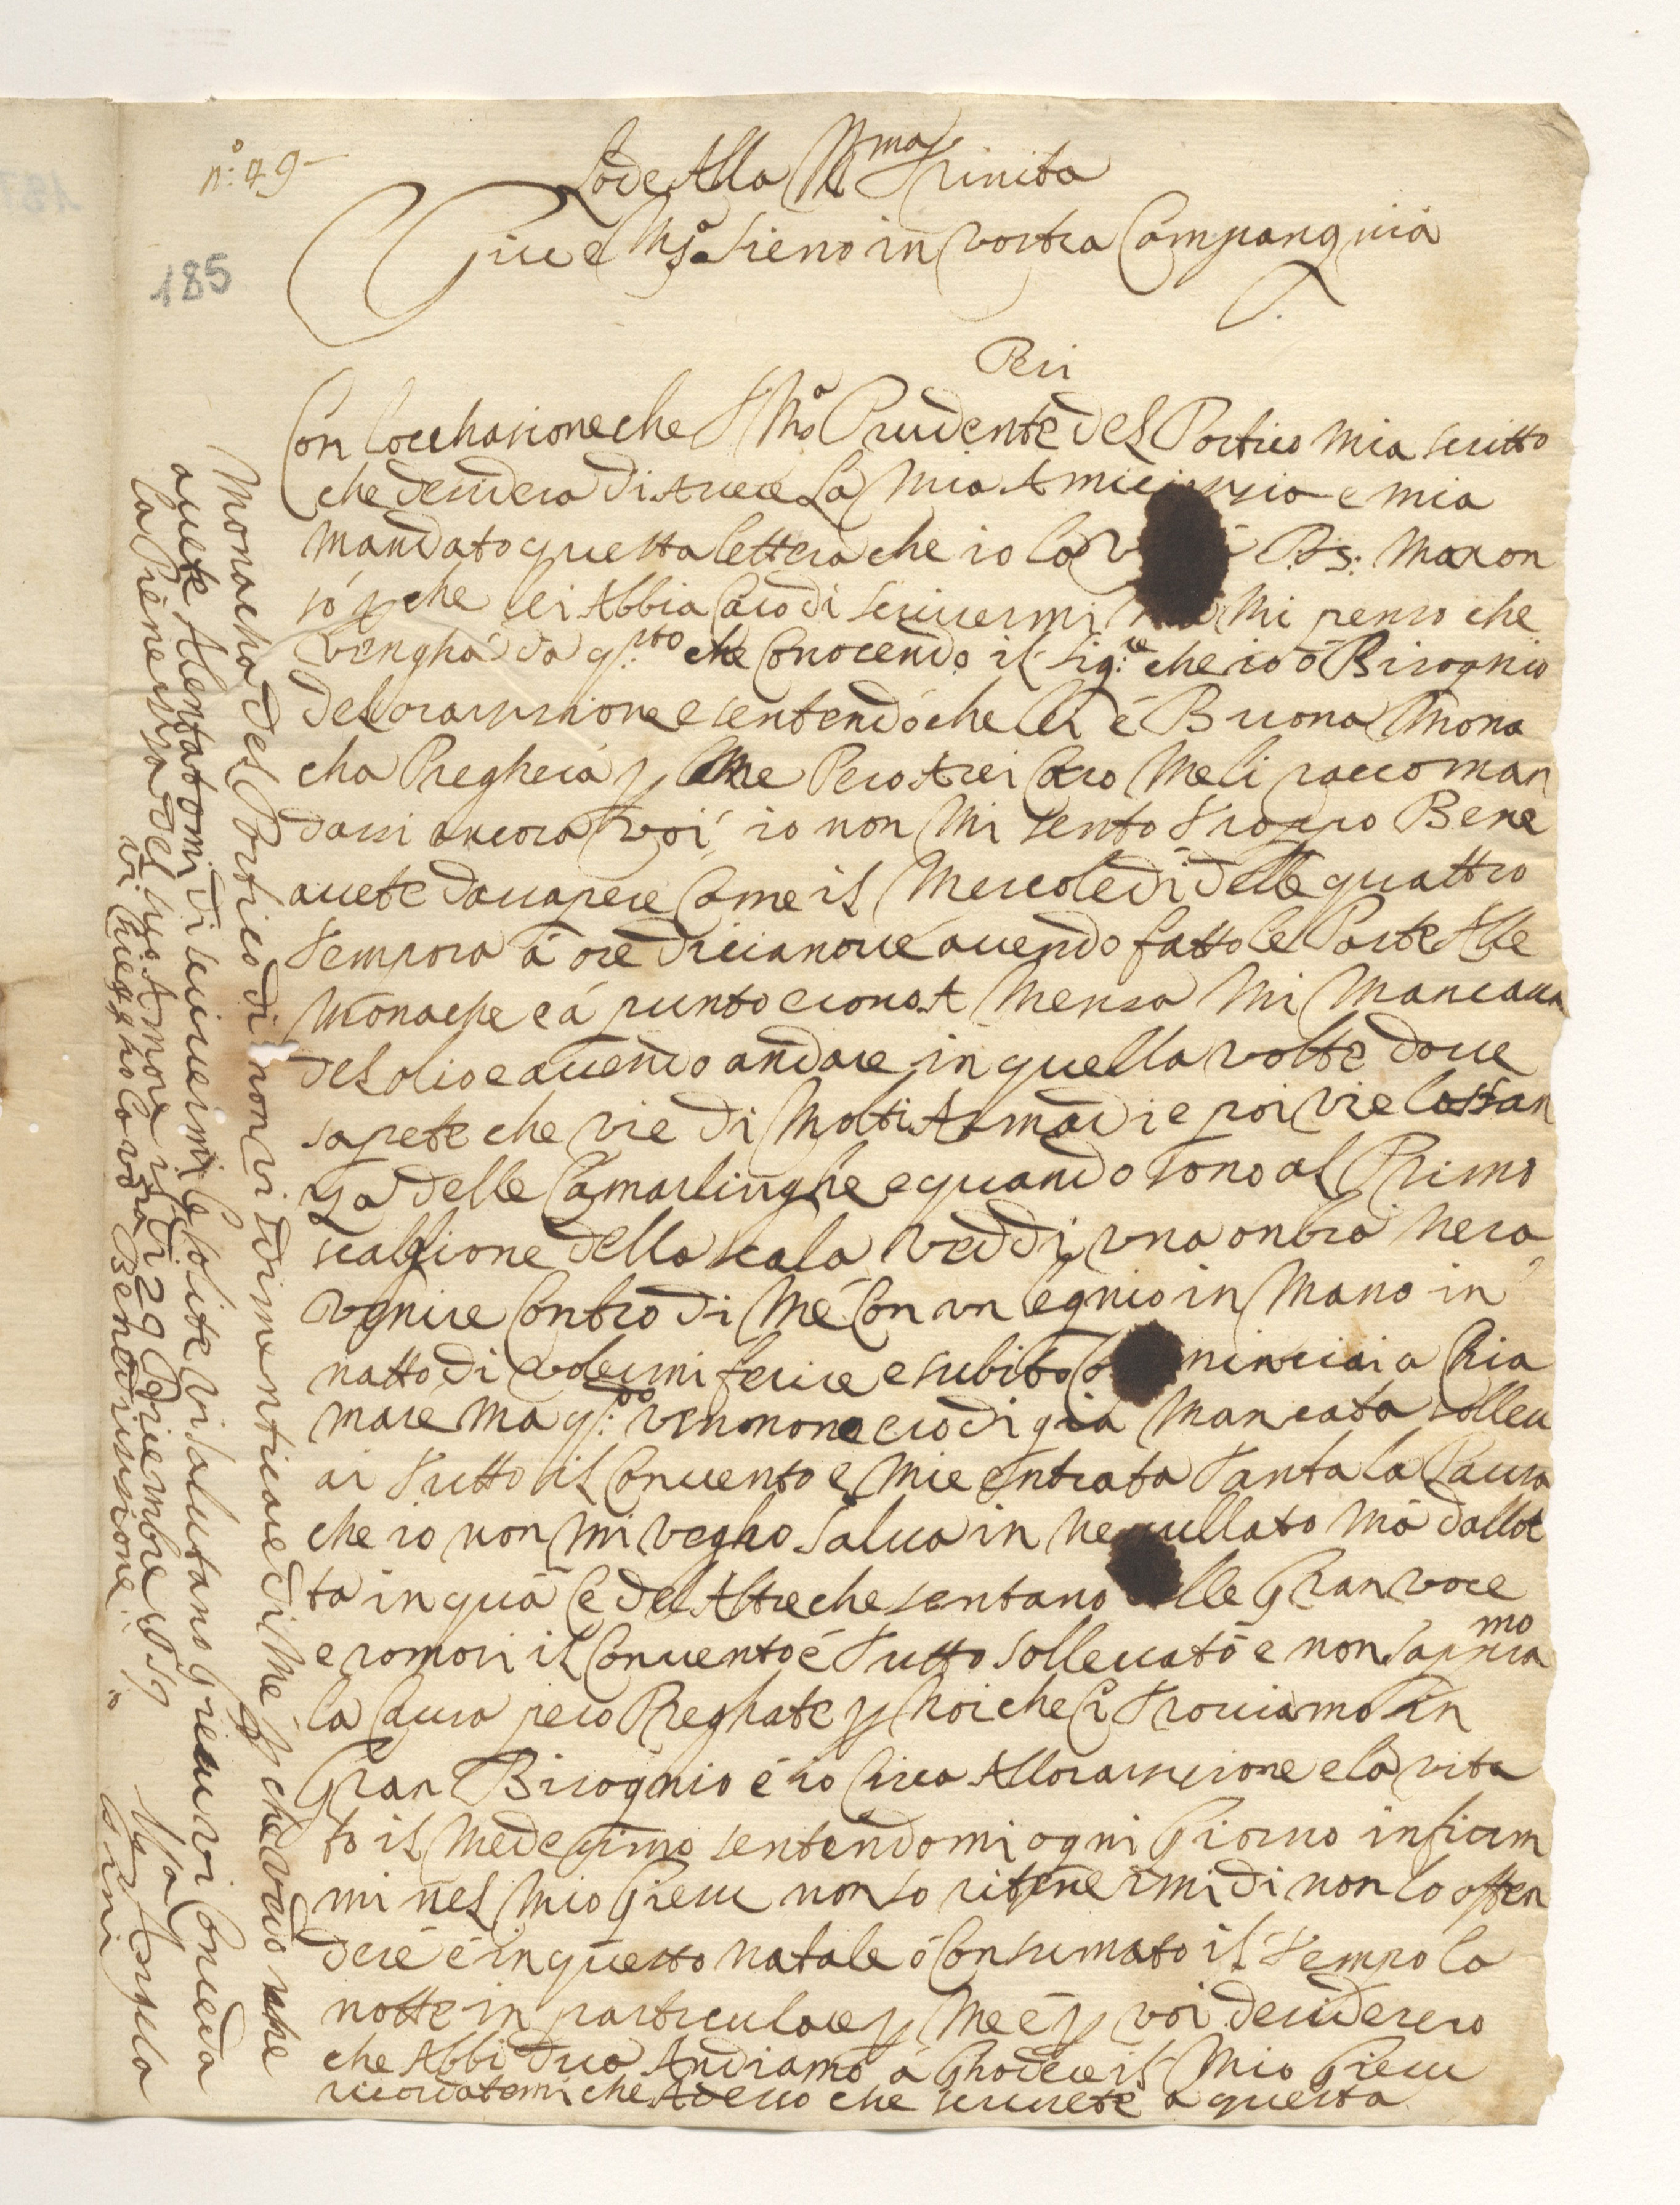 n.º 49
185
Lode Alla SS.ma Trinita
Giesu e Mª sieno in vostra Compangnia
Peri
Con Locchasione che S Mª Prudente del Portico mia scritto
che desidera di Avere La mia Amicissia e mia
mandato questa lettera che io la P.S. ma non
só p che lei Abbia Caro di scrivermi Mi penso che
vengha da q.sto che Conocendo il Sig.re che io ó Bisognio
del orassione e sentendo che lei é Buona Mona
cha Pregherá p Me Pero Arei Caro Meli raccoman
dassi ancora voi io non Mi sento Troppo Bene
avete da sapere Come il Mercoledi delle quattro
Tempora á ore dicianove avendo fatto le Parte Alle
Monache e á punto erono A Mensa Mi Mancava
del olio e avendo andare in quella volte dove
sapete che vie di Molti Armadi e poi vie la stan
za delle Camarlinghe e quando sono al Primo
scaglione della scala veddi una onbra nera
venire Contro di Mé Con un legnio in Mano in
natto di volermi ferire e subito Co ninciai a Chia
mare ma q.do vennono ero di gia Mancata sollev
ai Tutto il Convento e Mie entrata Tanta la Paura
che io non Mi vegho Salva in ne sullato Ma dallot
ta in quá Ce del Altre che sentano delle Gran voce
e romori il Convento é Tutto sollevato e non sapia mo
la Causa pero Preghate p Noi che Ci Troviamo in
Gran Bisognio é io Circa Allorassione e la vita
fo il Medesimo sentendomi ogni Giorno infiam
mi nel Mio Giesu non so ritenermi di non lo offen
dere é in questo Natale ó Consumato il Tempo la
notte in particulare p Me é p voi desiderero
che Abbi dua Andiamo á Ghodere il Mio Giesu
ricordatemi che Adesso che scrivete a questa
Monacha del Portico di non vi dimenticare di Me p che vedo che
avete Alentatomi di scrivermi le solite vi salutano Giesu vi Conceda
la Pienessza del suo Amore il di 29 Dicienbre
vi Chiegho la vª Benedissione
Mª Angela
Cini